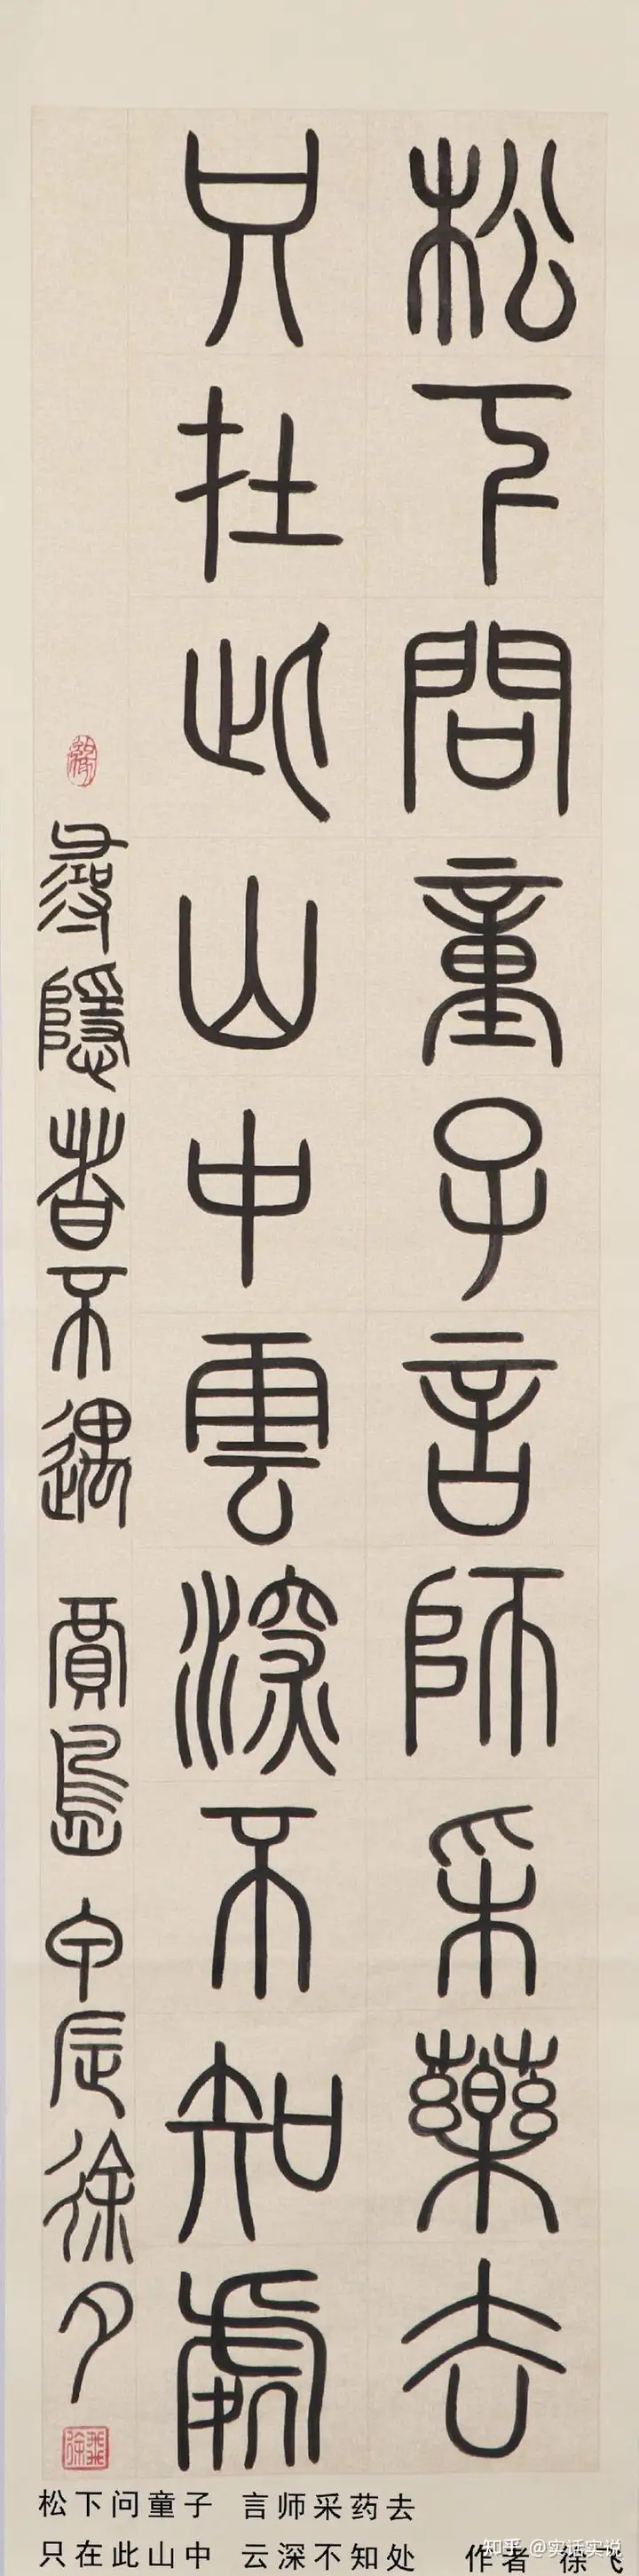 松下問童子言師采藥去
只在此山中雲深不知處
尋隱者不遇 賈島 甲辰徐
松下问童子 言师采药去
只在此山中 云深不知处 作者 徐飞
知乎 @实话实说